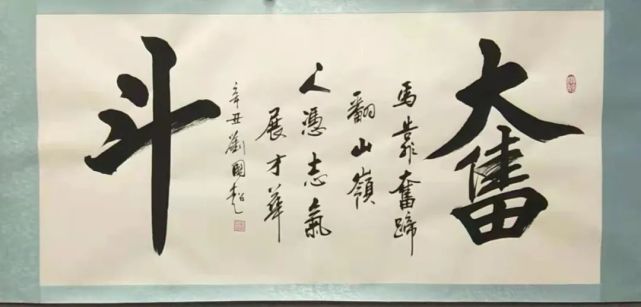 奮
馬靠奮蹄
翻山嶺
人憑志氣
展才華
斗
辛丑劉國超